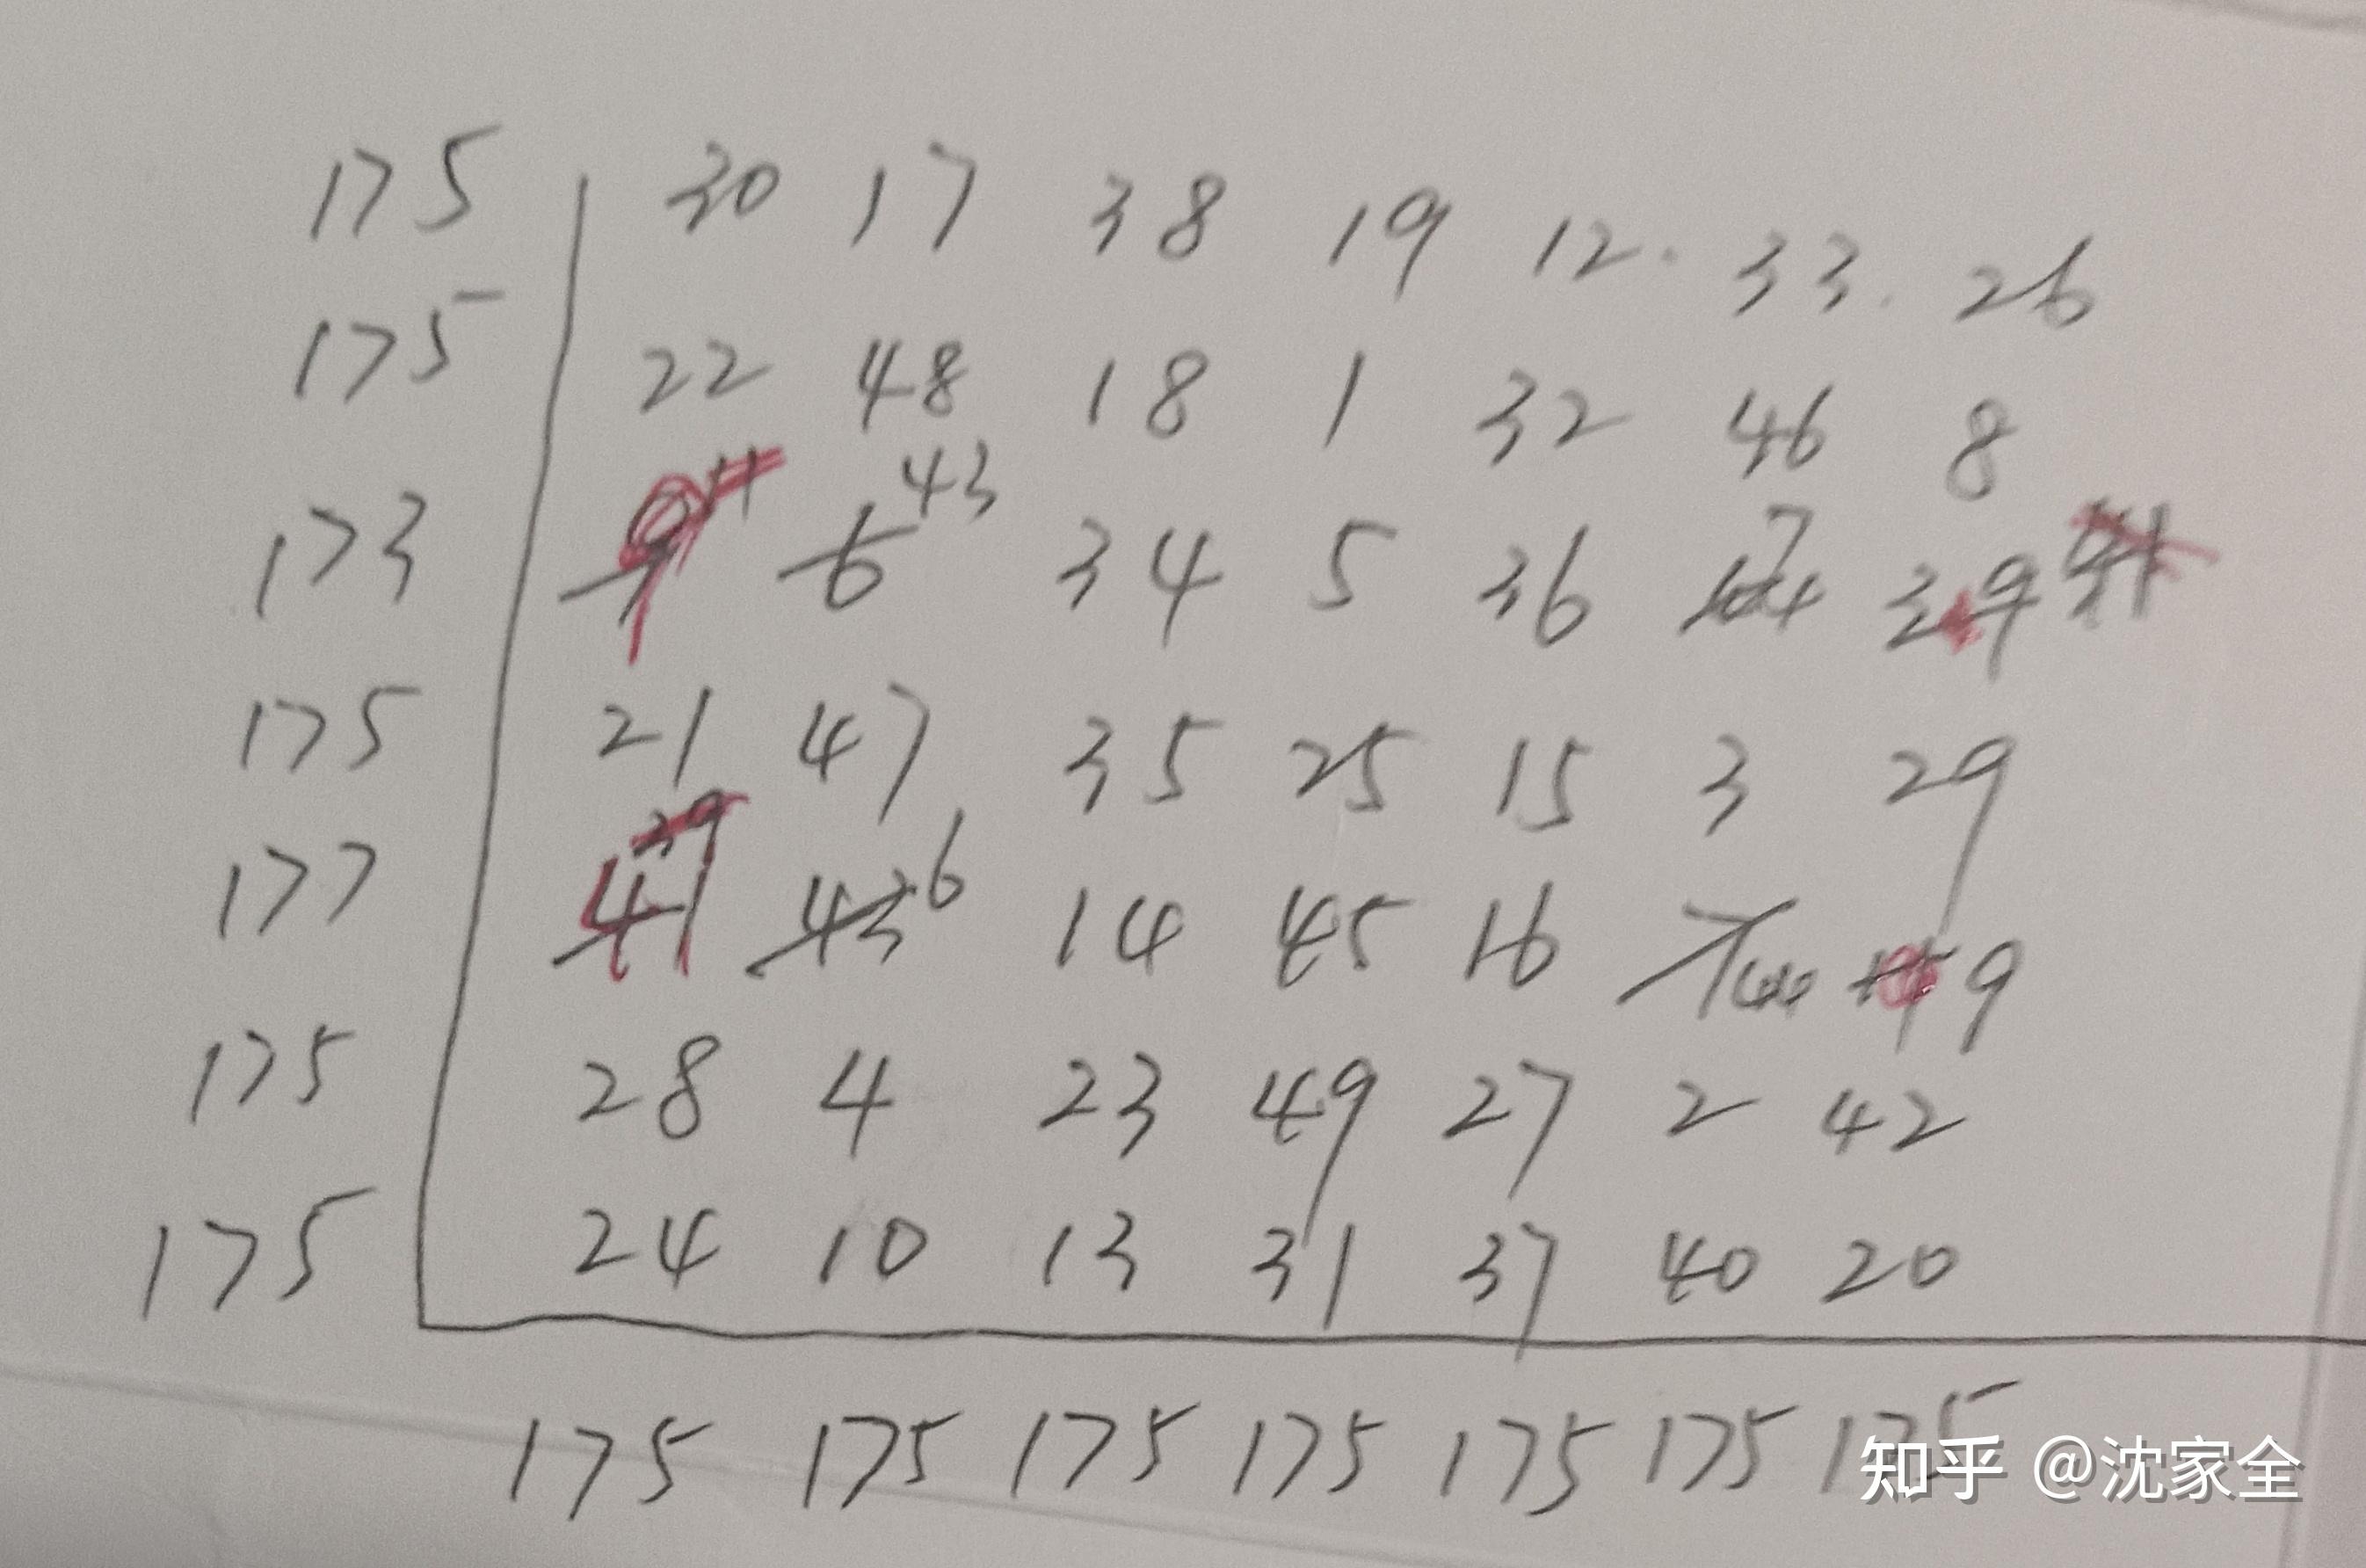 175 30 17 38 19 12. 33. 26
175 22 48 18 1 32 46 8
173 9 11 6 43 34 5 36 44 7 39 41
175 21 47 35 25 15 3 29
177 41 39 43 6 14 45 16 7 44 9
175 28 4 23 49 27 2 42
175 24 10 13 31 37 40 20
175 175 175 175 175 175 175
知乎 @沈家全